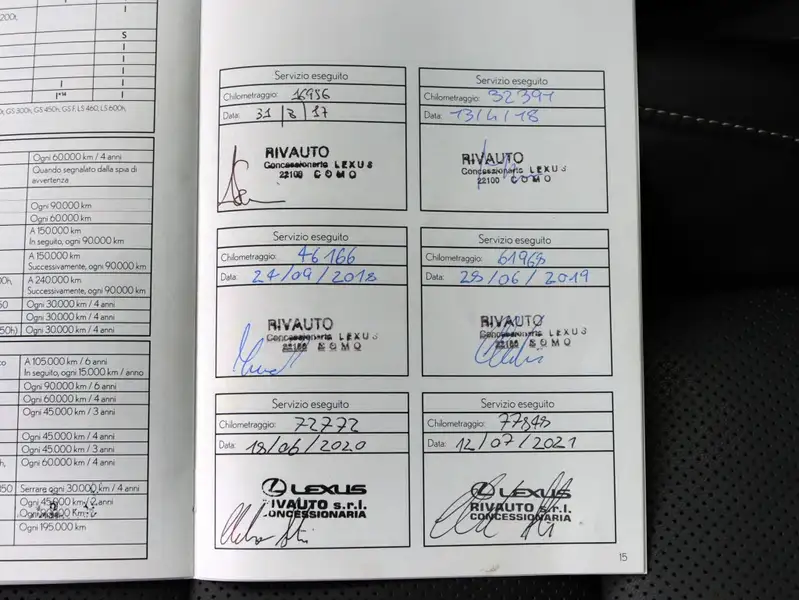 200t,
S
I
I
I
I
I
I*¹⁴ I
GS 300h, GS 450h, GS F, LS 460, LS 600h,
Ogni 60.000 km / 4 anni
Quando segnalato dalla spia di
avvertenza
Ogni 90.000 km
Ogni 60.000 km
A 150.000 km
In seguito, ogni 90.000 km
A 150.000 km
Successivamente, ogni 90.000 km
A 240.000 km
Successivamente, ogni 90.000 km
Ogni 30.000 km / 4 anni
Ogni 30.000 km / 4 anni
Ogni 30.000 km / 4 anni
A 105.000 km / 6 anni
In seguito, ogni 15.000 km / anno
Ogni 90.000 km / 6 anni
Ogni 60.000 km / 4 anni
Ogni 45.000 km / 3 anni
Ogni 45.000 km / 4 anni
Ogni 45.000 km / 3 anni
Ogni 60.000 km / 4 anni
Serrare ogni 30.000 km / 4 anni
Ogni 45.000 km / 2 anni
Ogni 195.000 km
Servizio eseguito
Chilometraggio: 16956
Data: 31/3/17
RIVAUTO
Concessionaria LEXUS
22100 COMO
Servizio eseguito
Chilometraggio: 32391
Data: 13/4/18
RIVAUTO
Concessionaria LEXUS
22100 COMO
Servizio eseguito
Chilometraggio: 46166
Data: 24/09/2018
RIVAUTO
Concessionaria LEXUS
22100 COMO
Servizio eseguito
Chilometraggio: 61968
Data: 28/06/2019
RIVAUTO
Concessionaria LEXUS
22100 COMO
Servizio eseguito
Chilometraggio: 72772
Data: 18/06/2020
LEXUS
RIVAUTO s.r.l.
CONCESSIONARIA
Servizio eseguito
Chilometraggio: 77848
Data: 12/07/2021
LEXUS
RIVAUTO s.r.l.
CONCESSIONARIA
15